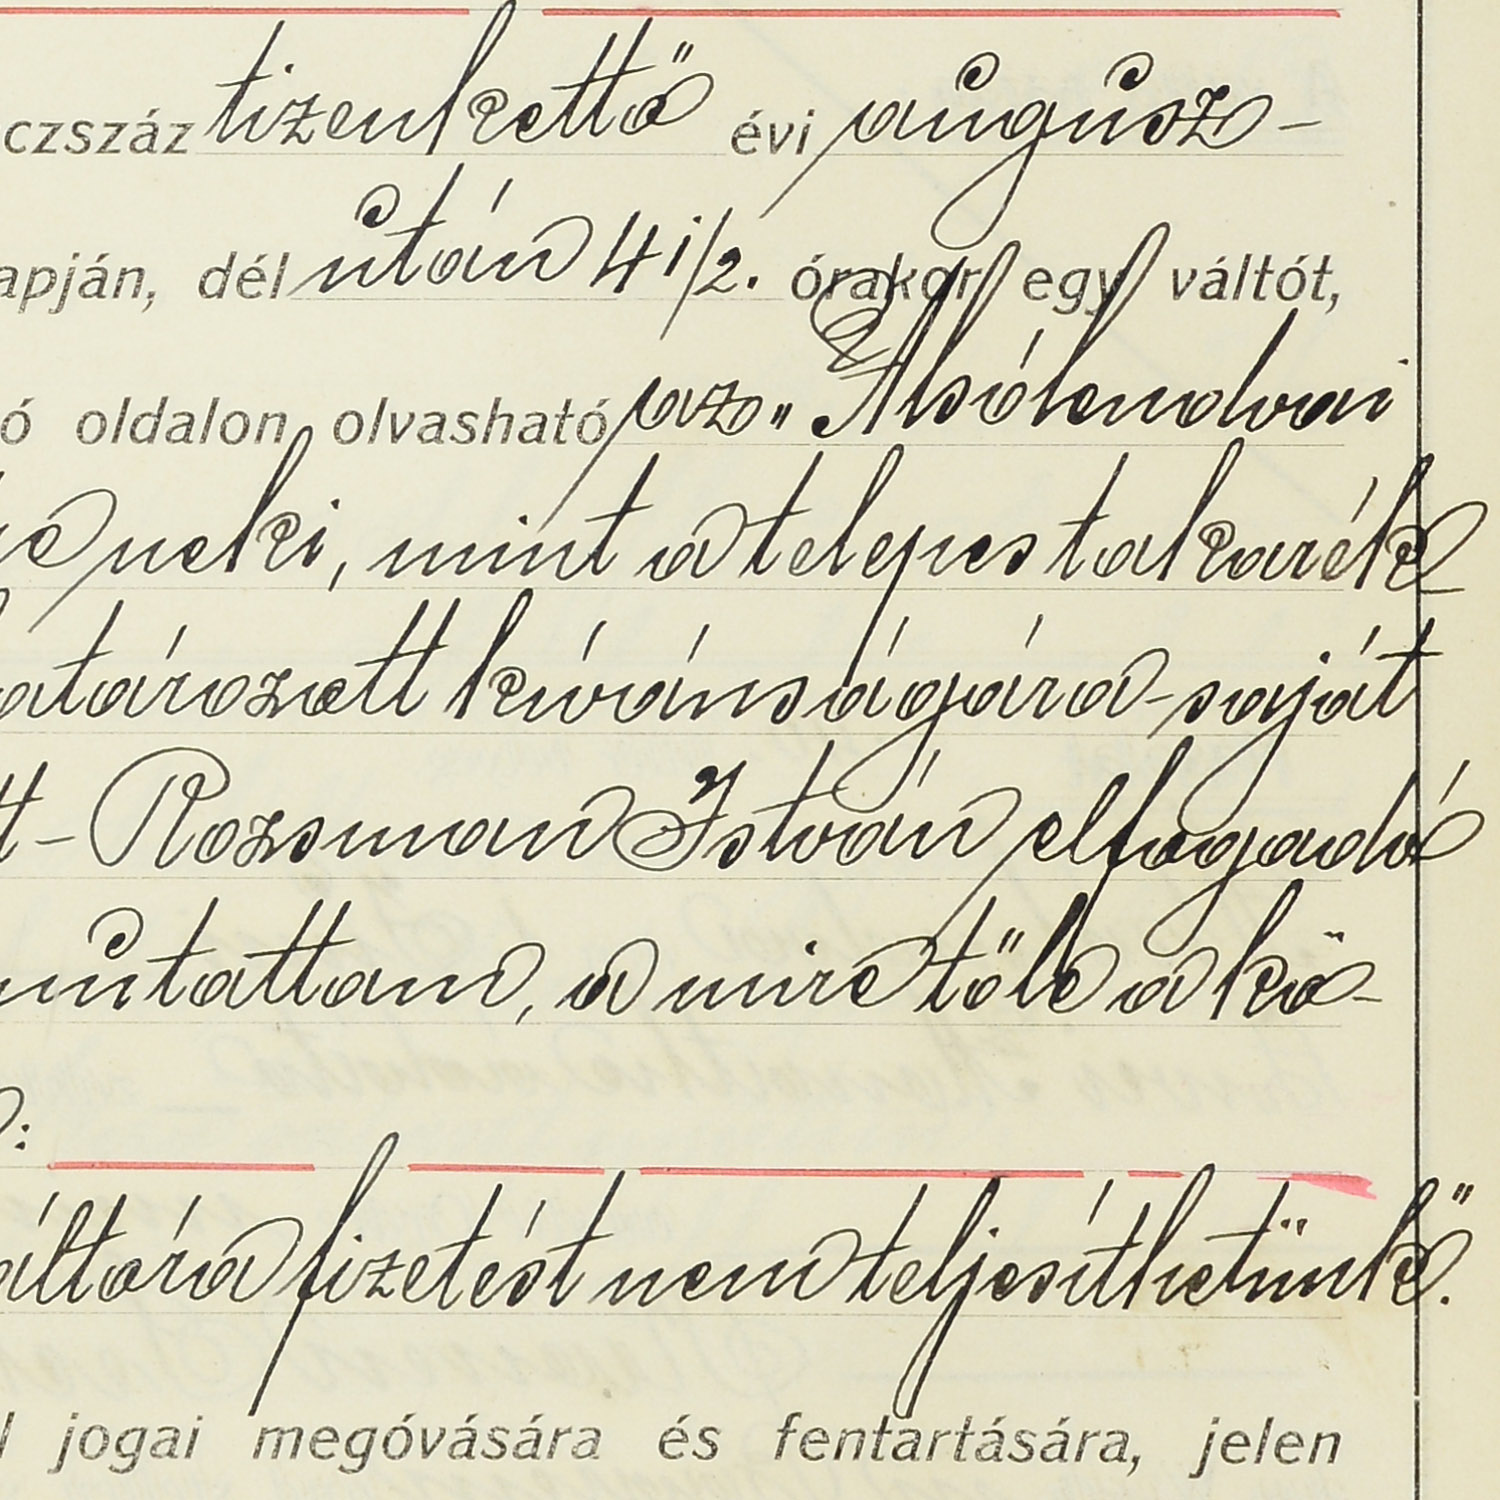 czszáz tizenkettő évi augusz-
apján, dél után 4 1/2. órakor egy váltót,
ó oldalon olvasható az „Alsólendvai
neki, mint a telepes takarék-
atározott kívánságára - saját
tt - Rozsman István elfogadó
mutattam, a mire tőle a kö-
:
áltóra fizetést nem teljesíthetünk".
l jogai megóvására és fentartására, jelen